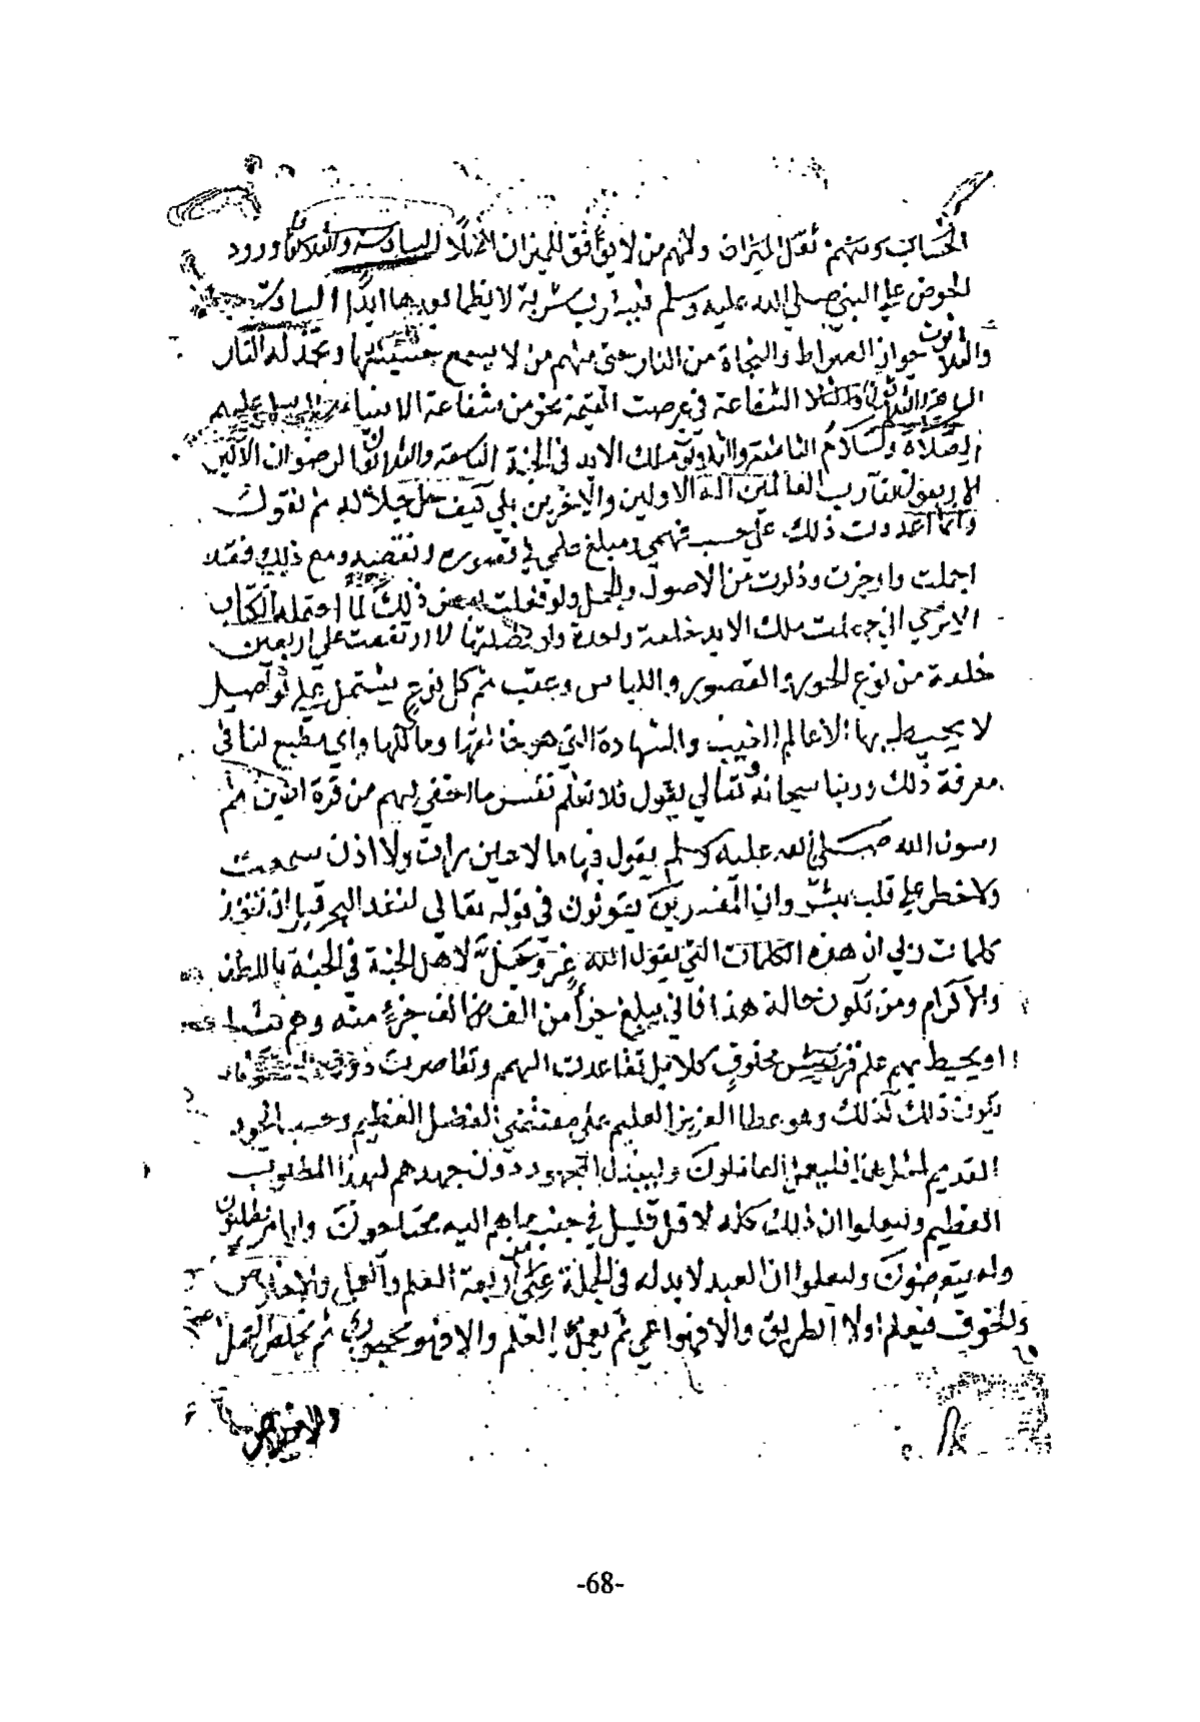 الحساب ومنهم ثقل الميزان ومنهم من لا يوافق للميزان اصلا السادسة والثلاثون ورود
الحوض على النبي صلى الله عليه وسلم فيشرب شربة لا يظما بعدها ابدا السادسة
والثلاثون جواز الصراط والنجاة من النار حتى منهم من لا يسمع حسيسها وتخمد له النار
الشفاعة في عرصت القيمة نحو من شفاعة الانبياء والرسل عليهم
الصلاة والسلام الثامنة والثلاثون ملك الابد في الجنة التاسعة والثلاثون الرضوان الاكبر
الاربعون لقا رب العالمين اله الاولين والاخرين بلي كيف جل جلاله ثم نقول
وانما اعددت ذلك على حسب فهمي ومبلغ علمي في قصوره ونقصه ومع ذلك فقد
اجملت واوجزت وذكرت من الاصول والجمل ولو فصلت بعض ذلك لما احتمله الكتاب
الا ترى اني جعلت ملك الابد خلعة واحدة ولو فصلتها لارتفعت على اربعين
خلعة من نوع الحور والقصور واللباس وعقب ثم كل نوع يشتمل على تفاصيل
لا يحيط بها الا عالم الغيب والشهادة الذي هو خالقها ومالكها واي مطمع لنا في
معرفة ذلك وربنا سبحانه وتعالى يقول فلا تعلم نفس ما اخفي لهم من قرة اعين ثم
رسول الله صلى الله عليه وسلم يقول فيها ما لا عين رات ولا اذن سمعت
ولا خطر على قلب بشر وان المفسرين يقولون في قوله تعالى لنفد البحر قبل ان تنفد
كلمات ربي ان هذه الكلمات التي يقول الله عز وجل لاهل الجنة في الجنة باللطف
والاكرام ومن تكون حاله هذا فاني يبلغ جزأ من الف الف جزء منه وهم بشر
او يحيط بهم علم مخلوق كلا بل تقاعدت الهمم وتقاصرت دونه
يكون ذلك كذلك وهو عطا العزيز العليم على مقتضى الفضل العظيم وحسب الجود
القديم لمثل هذا فليعمل العاملون وليبذل المجهود دون جهدهم لهذا المطلوب
العظيم وليعلموا ان ذلك كله لاقل قليل في جنب ما هم اليه محتاجون واياه يطلبون
وله يتعرضون وليعلموا ان العبد لا بد له في الجملة على اربعة العلم والعمل والاخلاص
والخوف فيعلم اولا الطريق والا فهو اعمى ثم يعمل بالعلم والا فهو محجوب ثم يخلص العمل
والا فهو
-68-